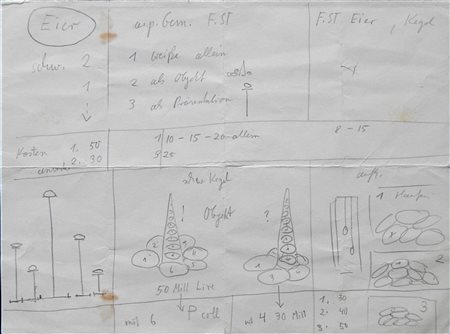 Eier
F.ST
F.ST Eier, Kegel
schw. 2
1
1 weiße allein
2 als Objekt
3 als Präsentation
Kosten 1. 50
2. 30
1 10 - 15 - 20 allein
8 - 15
schw Kegel
! Objekt ?
1 Haufen
2
50 Mill Lire
mit 6
P coll
mit 4 30 Mill
1. 30
2. 40
3. 50
3